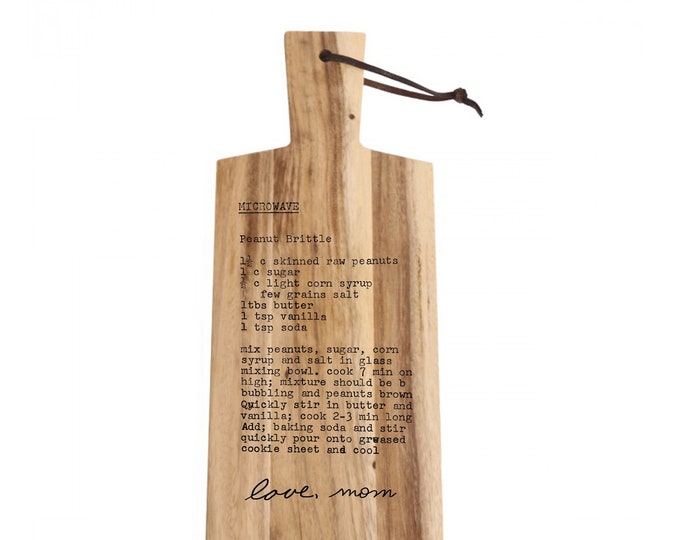 MICROWAVE
Peanut Brittle
1½ c skinned raw peanuts
1 c sugar
½ c light corn syrup
few grains salt
1tbs butter
1 tsp vanilla
1 tsp soda
mix peanuts, sugar, corn
syrup and salt in glass
mixing bowl. cook 7 min on
high; mixture should be b
bubbling and peanuts brown
Quickly stir in butter and
vanilla; cook 2-3 min long
Add; baking soda and stir
quickly pour onto greased
cookie sheet and cool
love, mom